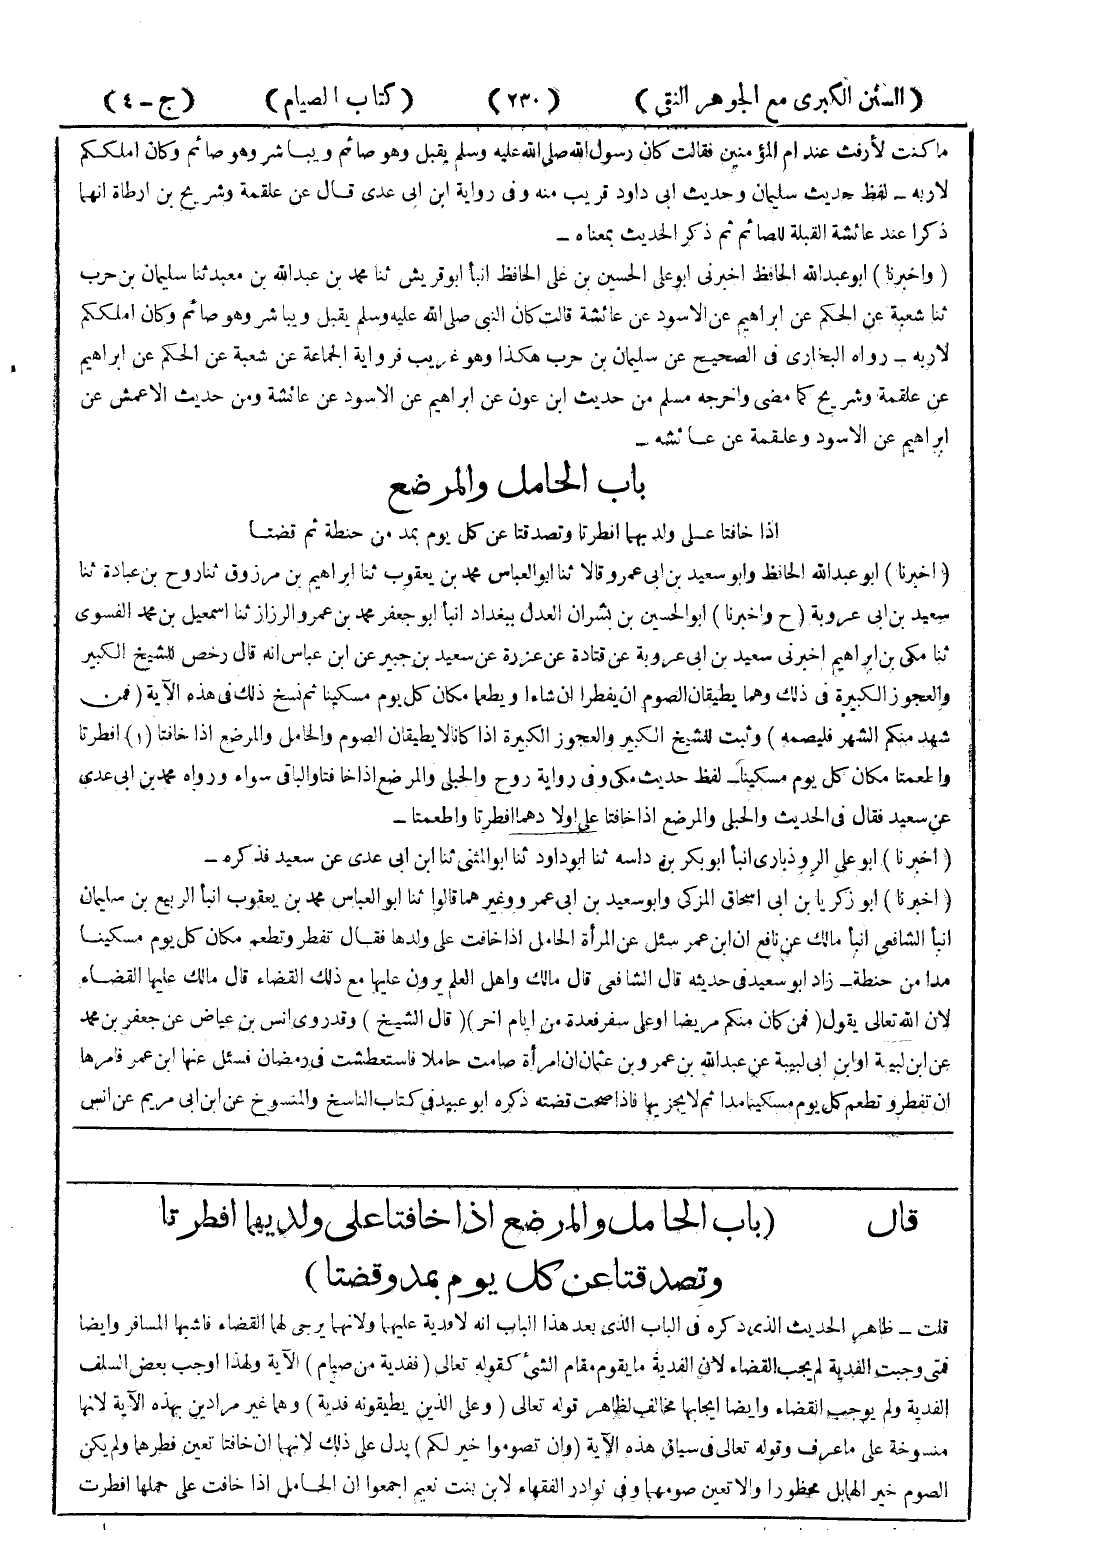 ( السنن الكبرى مع الجوهر النقى ) ( ٢٣٠ ) ( كتاب الصيام ) ( ج - ٤ )
ماكنت لأرفث عند ام المؤمنين فقالت كان رسول الله صلى الله عليه وسلم يقبل وهو صائم ويباشر وهو صائم وكان املككم
لاربه ــ لفظ حديث سليمان وحديث ابى داود قريب منه وفى رواية ابن ابى عدى قال عن علقمة وشريح بن ارطاة انهما
ذكرا عند عائشة القبلة للصائم ثم ذكر الحديث بمعناه ــ
( واخبرنا ) ابوعبدالله الحافظ اخبرنى ابوعلى الحسين بن على الحافظ انبأ ابوقريش ثنا محمد بن عبدالله بن معبد ثنا سليمان بن حرب
ثنا شعبة عن الحكم عن ابراهيم عن الاسود عن عائشة قالت كان النبى صلى الله عليه وسلم يقبل ويباشر وهو صائم وكان املككم
لاربه ــ رواه البخارى فى الصحيح عن سليمان بن حرب هكذا وهو غريب فرواية الجماعة عن شعبة عن الحكم عن ابراهيم
عن علقمة وشريح كما مضى واخرجه مسلم من حديث ابن عون عن ابراهيم عن الاسود عن عائشة ومن حديث الاعمش عن
ابراهيم عن الاسود وعلقمة عن عائشه ــ
باب الحامل والمرضع
اذا خافتا على ولديهما افطرتا وتصدقتا عن كل يوم بمد من حنطة ثم قضتا
( اخبرنا ) ابوعبدالله الحافظ وابوسعيد بن ابى عمرو قالا ثنا ابوالعباس محمد بن يعقوب ثنا ابراهيم بن مرزوق ثنا روح بن عبادة ثنا
سعيد بن ابى عروبة ( ح واخبرنا ) ابوالحسين بن بشران العدل ببغداد انبأ ابوجعفر محمد بن عمرو الرزاز ثنا اسمعيل بن محمد الفسوى
ثنا مكى بن ابراهيم اخبرنى سعيد بن ابى عروبة عن قتادة عن عزرة عن سعيد بن جبير عن ابن عباس انه قال رخص للشيخ الكبير
والعجوز الكبيرة فى ذلك وهما يطيقان الصوم ان يفطرا ان شاءا ويطعما مكان كل يوم مسكينا ثم نسخ ذلك فى هذه الآية ( فمن
شهد منكم الشهر فليصمه ) وثبت للشيخ الكبير والعجوز الكبيرة اذا كانا لايطيقان الصوم والحامل والمرضع اذا خافتا (١) افطرتا
واطعمتا مكان كل يوم مسكيناً ــ لفظ حديث مكى وفى رواية روح والحبلى والمرضع اذا خافتا والباقى سواء ورواه محمد بن ابى عدى
عن سعيد فقال فى الحديث والحبلى والمرضع اذا خافتا على اولادهما افطرتا واطعمتا ــ
( اخبرنا ) ابوعلى الروذبارى انبأ ابوبكر بن داسه ثنا ابوداود ثنا ابوالمثنى ثنا ابن ابى عدى عن سعيد فذكره ــ
( اخبرنا ) ابوزكريا بن ابى اسحاق المزكى وابوسعيد بن ابى عمرو وغيرهما قالوا ثنا ابوالعباس محمد بن يعقوب انبأ الربيع بن سليمان
انبأ الشافعى انبأ مالك عن نافع ان ابن عمر سئل عن المرأة الحامل اذا خافت على ولدها فقال تفطر وتطعم مكان كل يوم مسكينا
مدا من حنطة ــ زاد ابوسعيد فى حديثه قال الشافعى قال مالك واهل العلم يرون عليها مع ذلك القضاء قال مالك عليها القضاء
لان الله تعالى يقول ( فمن كان منكم مريضا اوعلى سفر فعدة من ايام اخر ) ( قال الشيخ ) وقد روى انس بن عياض عن جعفر بن محمد
عن ابن لبيبة اوابن ابى لبيبة عن عبدالله بن عمرو بن عثمان ان امرأة صامت حاملا فاستعطشت فى رمضان فسئل عنها ابن عمر فامرها
ان تفطر وتطعم كل يوم مسكينا مدا ثم لايجزيها فاذا صحت قضته ذكره ابوعبيد فى كتاب الناسخ والمنسوخ عن ابن ابى مريم عن انس
قال ( باب الحامل والمرضع اذا خافتا على ولديهما افطرتا
وتصدقتا عن كل يوم بمد وقضتا )
قلت ــ ظاهر الحديث الذى ذكره فى الباب الذى بعد هذا الباب انه لافدية عليهما ولانهما يرجى لهما القضاء فاشبها المسافر وايضا
فمتى وجبت الفدية لم يجب القضاء لان الفدية مايقوم مقام الشئ كقوله تعالى ( ففدية من صيام ) الآية ولهذا اوجب بعض السلف
الفدية ولم يوجب القضاء وايضا ايجابها مخالف لظاهر قوله تعالى ( وعلى الذين يطيقونه فدية ) وهما غير مرادين بهذه الآية لانها
منسوخة على ماعرف وقوله تعالى فى سياق هذه الآية ( وان تصوموا خير لكم ) يدل على ذلك لانهما ان خافتا تعين فطرهما ولم يكن
الصوم خير الهما بل محظورا والا تعين صومهما وفى نوادر الفقهاء لابن بنت نعيم اجمعوا ان الحامل اذا خافت على حملها افطرت